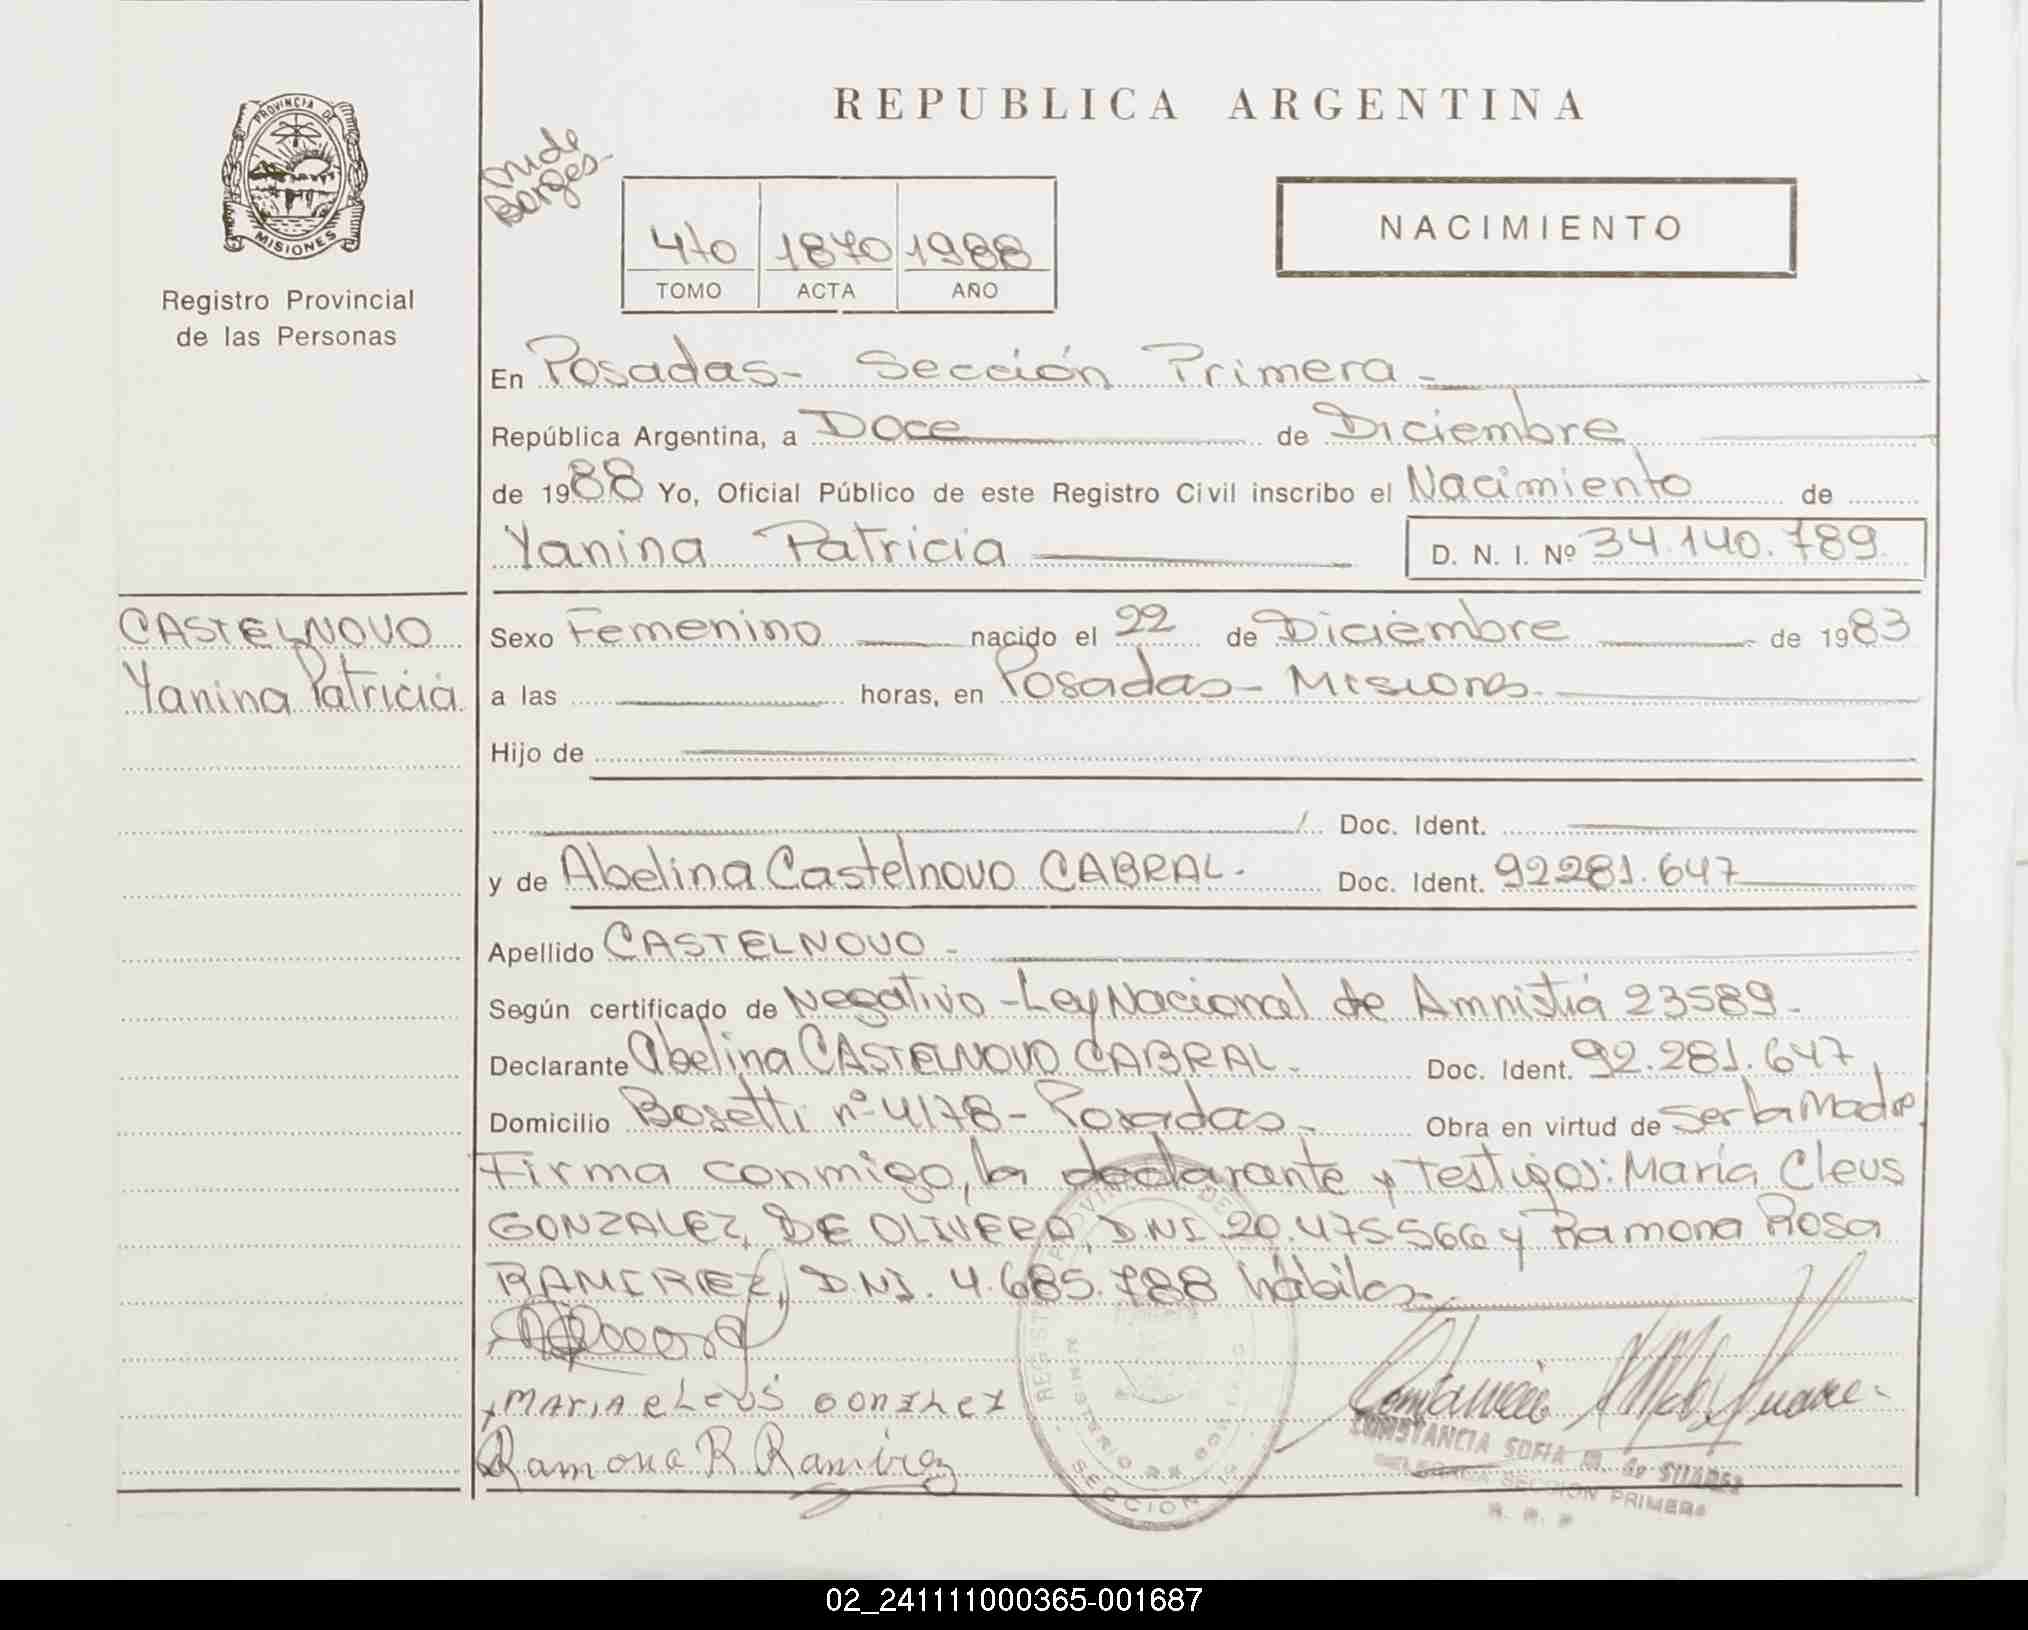 REPUBLICA ARGENTINA
PROVINCIA DE
MISIONES
Registro Provincial
de las Personas
Borges-
NACIMIENTO
470 1870 1988
TOMO ACTA AÑO
En Posadas- Sección Primera-
República Argentina, a Doce de Diciembre
de 1988 Yo, Oficial Público de este Registro Civil inscribo el Nacimiento de
Yanina Patricia
D. N. I. Nº 34.140.789.
CASTELNOVO
Yanina Patricia
Sexo Femenino nacido el 22 de Diciembre de 1983
a las horas, en Posadas- Misiones-
Hijo de
Doc. Ident.
y de Abelina Castelnovo CABRAL. Doc. Ident. 92.281.647
Apellido CASTELNOVO-
Según certificado de Negativo -Ley Nacional de Amnistiá 23589-
Declarante Abelina CASTELNOVO CABRAL- Doc. Ident. 92.281.647
Domicilio Bosetti nº 4178- Posadas- Obra en virtud de ser la Madre
Firma conmigo, la declarante y testigos: María Cleus
GONZALEZ, DE OLIVERA, D.N.I. 20.475566 y Ramona Rosa
RAMIREZ, D.N.I. 4.685.788 hábiles-
MARIA eLeUS GONZALEZ
Ramona R Ramirez
SECCION 1ª
CONSTANCIA SOFIA M. de SUAREZ
DELEGADA SECCION PRIMERA
R. R. P
02_241111000365-001687